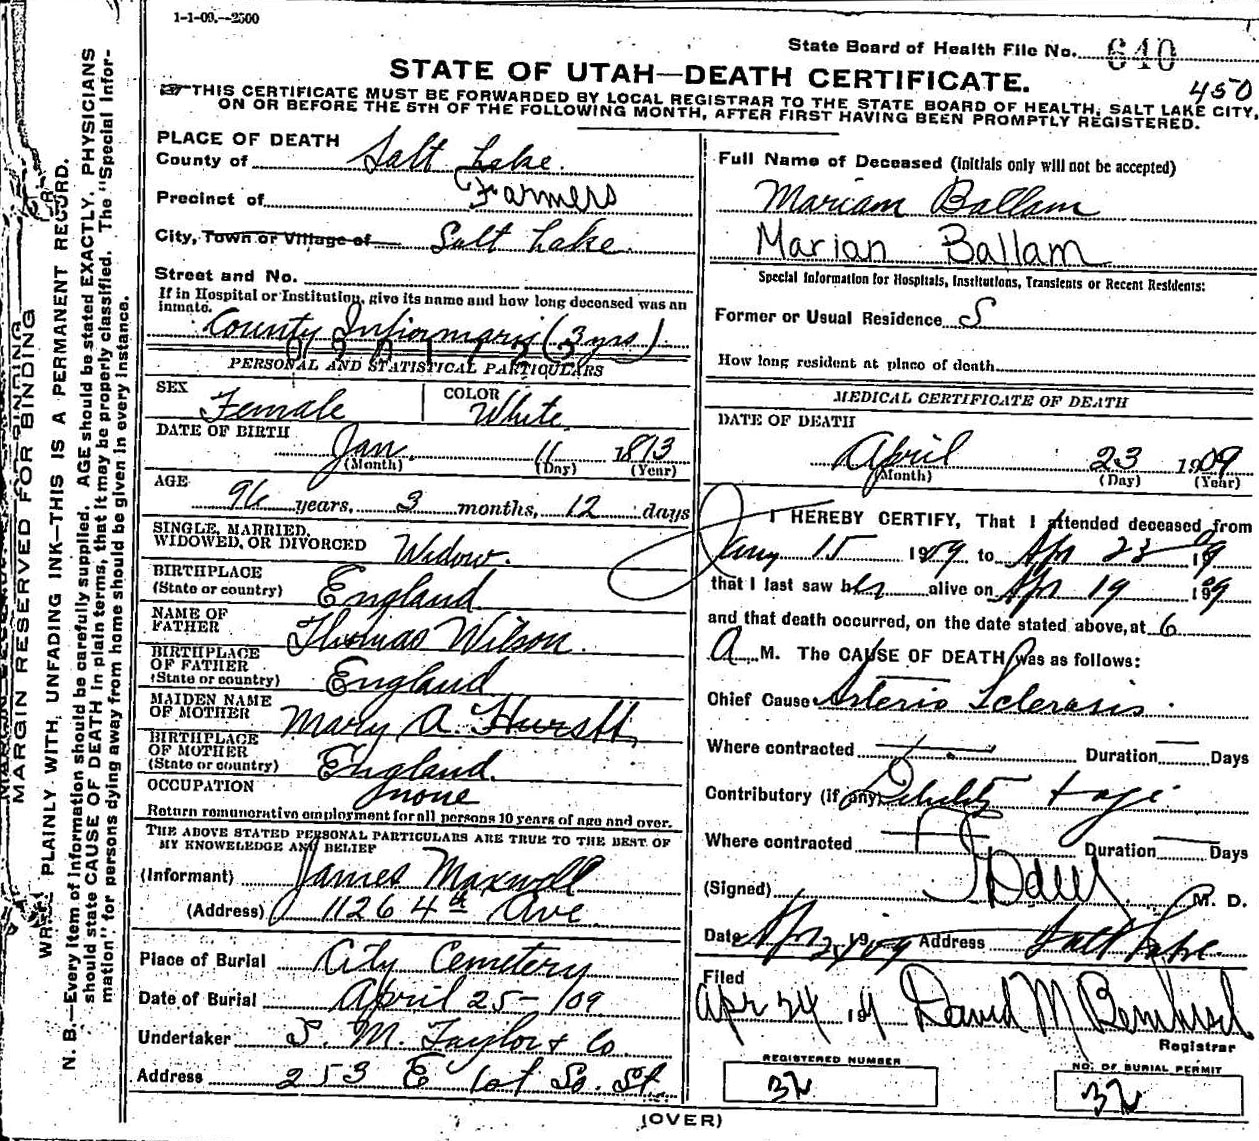 1-1-09.--2500
State Board of Health File No. 640
450
STATE OF UTAH—DEATH CERTIFICATE.
THIS CERTIFICATE MUST BE FORWARDED BY LOCAL REGISTRAR TO THE STATE BOARD OF HEALTH, SALT LAKE CITY,
ON OR BEFORE THE 5TH OF THE FOLLOWING MONTH, AFTER FIRST HAVING BEEN PROMPTLY REGISTERED.
MARGIN RESERVED FOR BINDING
PLAINLY WITH UNFADING INK—THIS IS A PERMANENT RECORD.
N. B.—Every item of information should be carefully supplied. AGE should be stated EXACTLY. PHYSICIANS
should state CAUSE OF DEATH in plain terms, that it may be properly classified. The "Special Infor-
mation" for persons dying away from home should be given in every instance.
PLACE OF DEATH
County of Salt Lake.
Precinct of Farmers
City, Town or Village of Salt Lake
Street and No.
If in Hospital or Institution, give its name and how long deceased was an
inmate.
County (3 yrs)
PERSONAL AND STATISTICAL PARTICULARS
SEX Female
COLOR White
DATE OF BIRTH
Jan. 11 1813
(Month) (Day) (Year)
AGE
96 years, 3 months, 12 days
SINGLE, MARRIED,
WIDOWED, OR DIVORCED Widow.
BIRTHPLACE
(State or country) England
NAME OF
FATHER Thomas Wilson.
BIRTHPLACE
OF FATHER
(State or country) England
MAIDEN NAME
OF MOTHER Mary A.
BIRTHPLACE
OF MOTHER
(State or country) England.
OCCUPATION
none
Return remunerative employment for all persons 10 years of age and over.
THE ABOVE STATED PERSONAL PARTICULARS ARE TRUE TO THE BEST OF
MY KNOWLEDGE AND BELIEF
(Informant) James Maxwell
(Address) 1126 4th Ave
Place of Burial City Cemetery
Date of Burial April 25-/09
Undertaker S. M. Taylor & Co
Address 253 E 1st So. St.
Full Name of Deceased (initials only will not be accepted)
Mariam Ballam
Marian Ballam
Special Information for Hospitals, Institutions, Transients or Recent Residents:
Former or Usual Residence S
How long resident at place of death
MEDICAL CERTIFICATE OF DEATH
DATE OF DEATH
April 23 1909
(Month) (Day) (Year)
I HEREBY CERTIFY, That I attended deceased from
Jany 15 1909 to Apr 23 1909
that I last saw her alive on Apr 19 1909
and that death occurred, on the date stated above, at 6
A M. The CAUSE OF DEATH was as follows:
Chief Cause Arterio Sclerosis.
Where contracted Duration Days
Contributory (if any) Debility + age
Where contracted Duration Days
(Signed) M. D.
Date Apr 1909 Address Salt Lake.
Filed
Apr 24 19 David M
Registrar
REGISTERED NUMBER
32
NO. OF BURIAL PERMIT
32
(OVER)